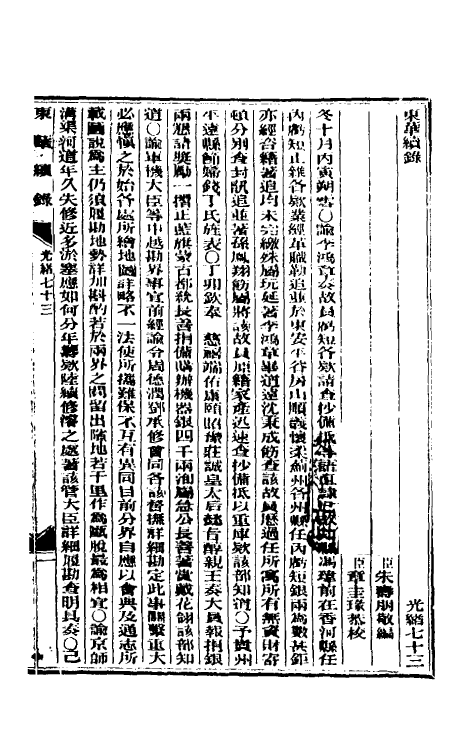 東華續錄
光緒七十三
臣朱壽朋敬編
臣章圭瑑恭校
冬十月丙寅朔雲○諭李鴻章奏故員虧短各款請查抄備抵馮璋前在香河縣任
內虧短正雜各款業經革職勒追並於東安平谷房山順義懷柔薊州各州縣任內虧短銀兩為數甚鉅
亦經咨籍著追均未完繳殊屬玩延著李鴻章畢道遠沈秉成飭查該故員歷過任所寓所有無資財寄
頓分別查封飭追並著孫鳳翔飭屬將該故員原籍家產迅速查抄備抵以重庫款該部知道○予貴州
平遠縣節婦錢丁氏旌表○丁卯欽奉　慈禧端佑康頤昭豫莊誠皇太后懿旨醇親王奏大員報捐銀
兩懇請獎勵一摺正藍旗蒙古都統長善捐備購辦機器銀四千兩洵屬急公長善著賞戴花翎該部知
道○諭軍機大臣等中越勘界事宜前經諭令周德潤鄧承修會同各該督撫詳細勘定此事關繫重大
必應慎之於始各處所繪地圖詳略不一法使所攜難保不互有異同目前分界自應以會典及通志所
載圖說為主仍須履勘地勢詳加斟酌若於兩界之間留出隙地若干里作為甌脫最為相宜○諭京師
溝渠河道年久失修近多淤塞應如何分年籌款陸續修濬之處著該管大臣詳細履勘查明具奏○己
東華續錄
光緒七十三
一